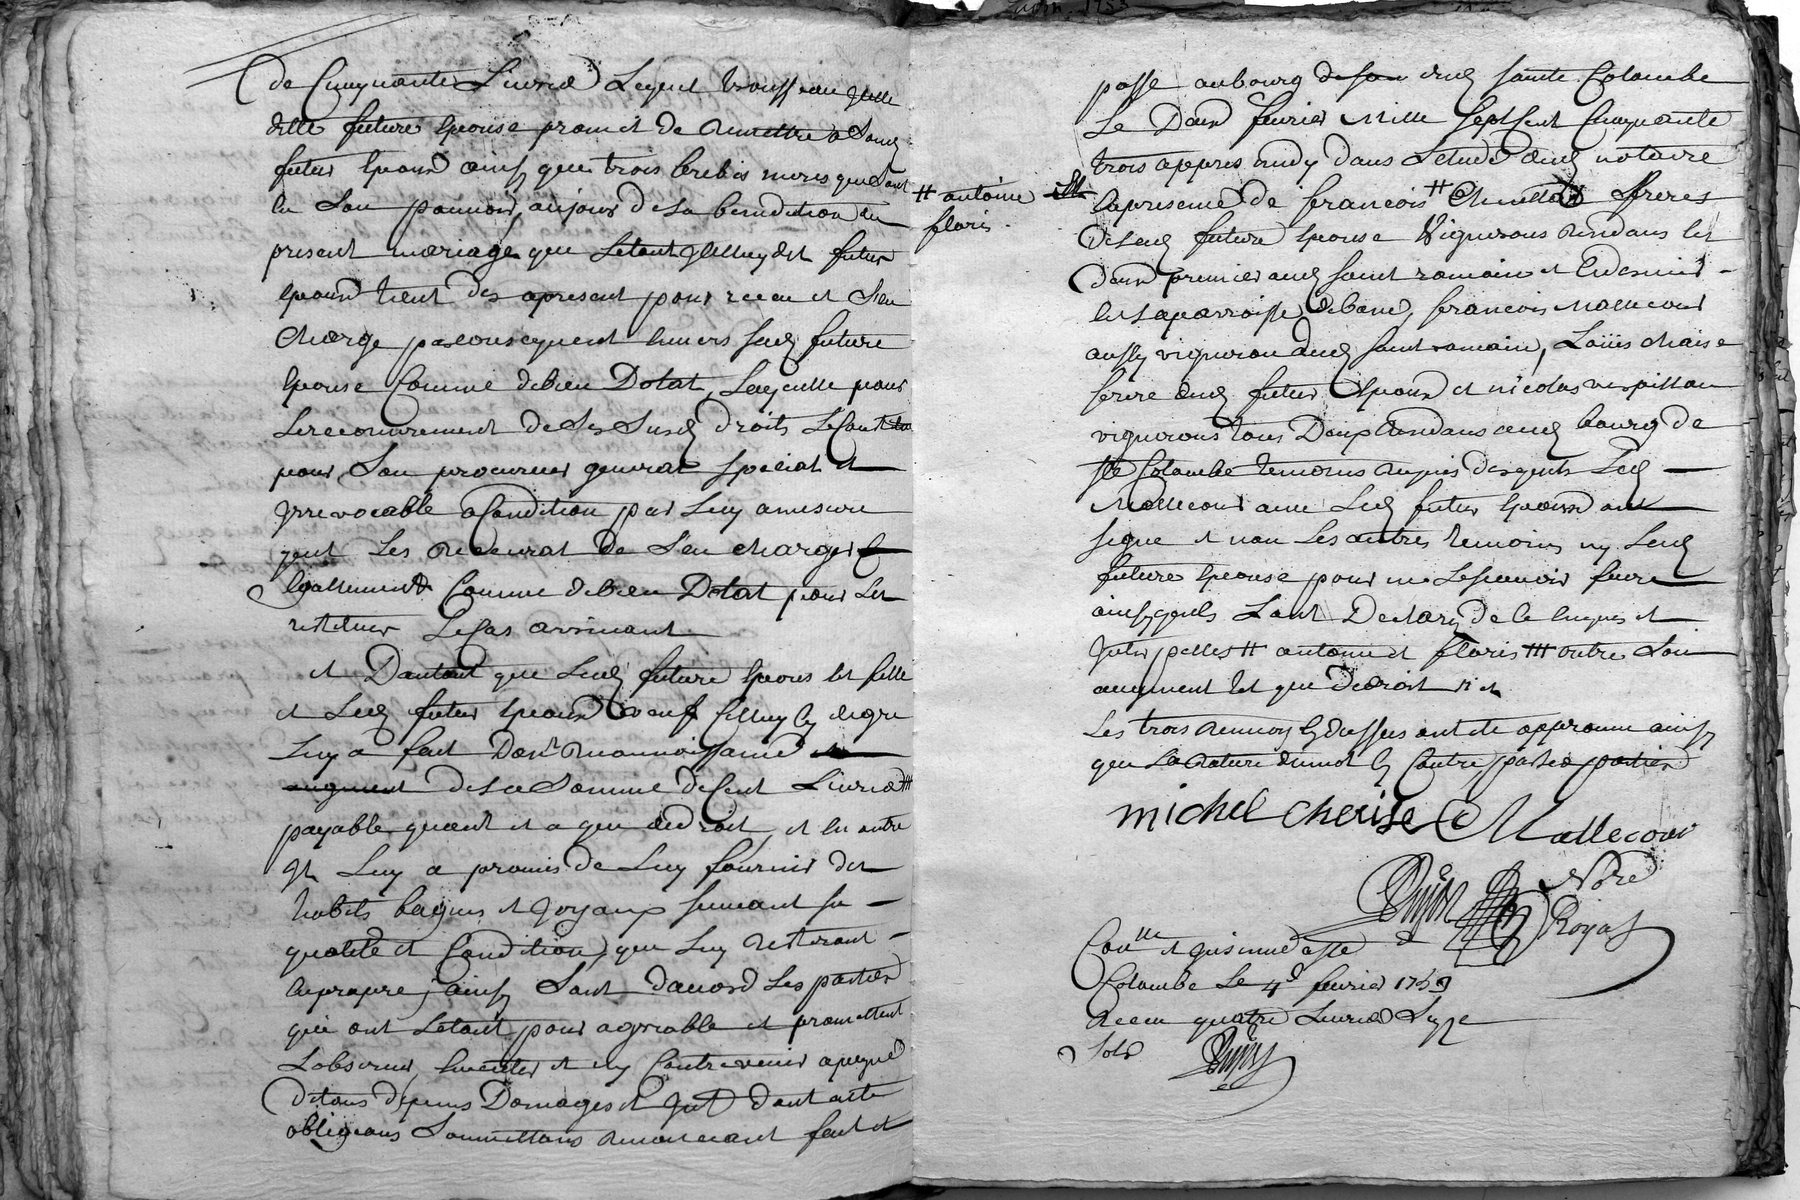 de Cinquante Livres Lequel trousseau jcelle
ditte future Epouse promet de Remettre a Sond
futur Epoux ainsy que trois brebis meres quelle ont
en Son pouvoir, aujour de La benediction du
present mariage que Letout jcelluy dit futur
Epoux tient des apresent pour receu et Sen
Charge parconsequent Envers Lad future
Epouse Comme debien Dotal, Laquelle pour
Lerecouvrement de Ses Susd droits Le Constitue
pour Son procureur general special et
jrrevocable a Condition par Luy amesure
quil Les Recevrat de Sen charger
Egallement Comme debien Dotal pour Les
restituer Le Cas arrivant
et Dautant que Lad future Epouse est fille
et Led futur Epoux veuf Celluy cy degre
Luy a fait Don et Reconnoissance
augment de La Somme de Cent Livres ///
payable quand et a qui de droit, et en outre
Jl Luy a promis de Luy fournir des
habits bagues et joyaux suivant sa
qualité et Condition, que Luy resteront
enpropre, ainsy Sont daccord Les parties
qui ont Letout pour agreable et promettent
Lobserver, Executer et ny Contrevenir apeyne
de tous depens Domages et jnt dont acte
obligeans Soumettans renonceant fait et
passé aubourg dud sainte Colombe
Le Deux fevrier Mille Sept Cent Cinquante
trois appres midy dans Letude dud notaire
# antoine
floris.
Enpresence de francois # freres
de Lad future Epouse Vignerons Residans les
deux premier aud saint romain et Ledernier
en Laparroisse de francois mallecour
aussy vigneron dud saint romain, Loüis chaise
frere dud futur Epoux et nicolas
vignerons tous Deux Residans aud bourg de
Ste Colombe temoins requis desquels Led
Mallecour avec Led futur Epoux ont
signé et non Les autres temoins ny Lad
future Epouse pour ne Lesçavoir faire
ainsy quils Lont Declaré de ce enquis et
jnterpellés # antoine et floris /// outre Son
augment tel que dedroit
Les trois renvoy cy dessus ont ete approuvé ainsy
que La rature dumot cy Contre
michel cherise Mallecour
Dujast Nore
Royal
Con.lle et jnsinué a Ste
Colombe Le 4e fevrier 1753
Receu quatre Livres Seize
sols